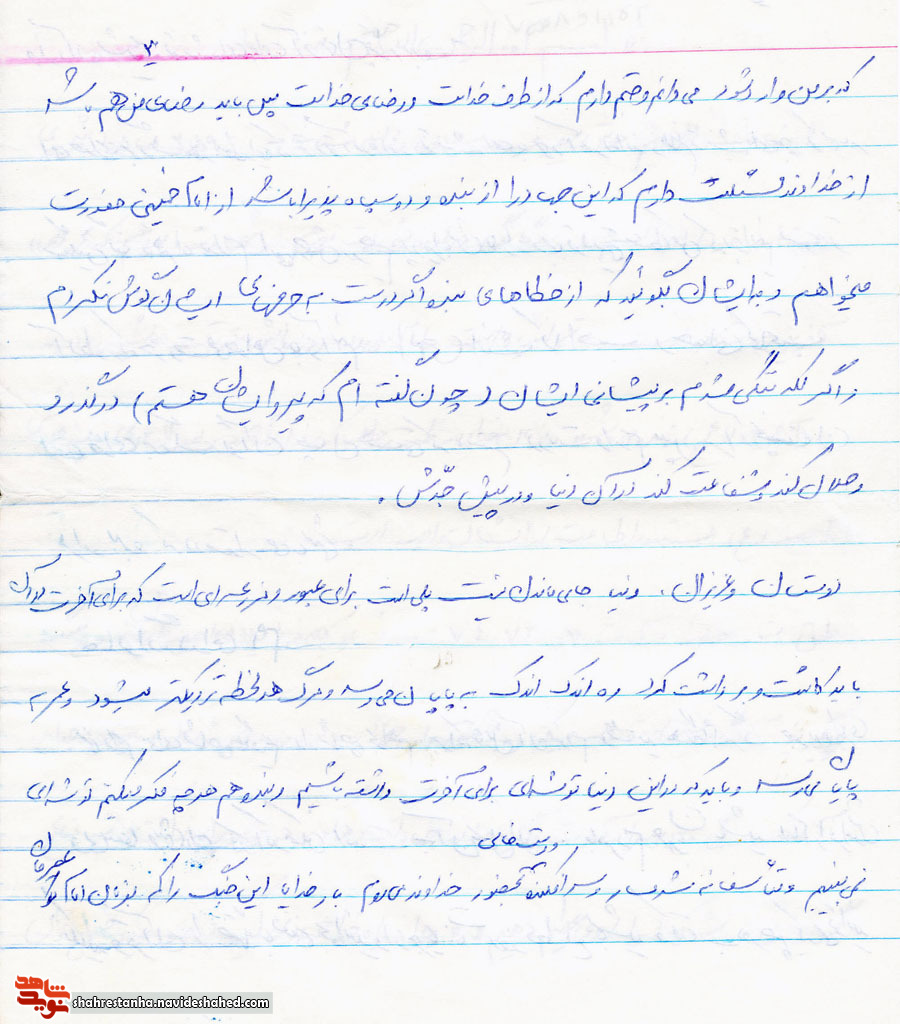 ۳
که بر من وارد شود می دانم و حتم دارم که از طرف خداست و رضای خداست پس باید رضای من هم باشد
از خداوند مسئلت دارم که این جهاد را از بنده روسیاه پذیرا باشد از امام خمینی معذرت
میخواهم و به ایشان بگوئید که از خطاهای بنده اگر درست به حرفهای ایشان گوش نکردم
و اگر لکه ننگی شدم بر پیشانی ایشان (چون گفته ام که پیرو ایشان هستم) درگذرد
و حلال کند و شفاعت کند در آن دنیا و در پیش جدّش .
دوستان و عزیزان . دنیا جای ماندن نیست پلی است برای عبور و مزرعه ای است که برای آخرت در آن
باید کاشت و برداشت کرد ره اندک اندک به پایان می رسد و مرگ هر لحظه نزدیکتر میشود و عمر به
پایان می رسد و باید که در این دنیا توشه ای برای آخرت داشته باشیم و بنده هم هر چه فکر میکنم توشه ای
نمی بینم و متأسفانه شرمسار و سرافکنده و دست خالی بحضور خداوند می روم بار خدایا این جنگ را که بفرمان امام
نوید شاهد
shahrestanha.navideshahed.com